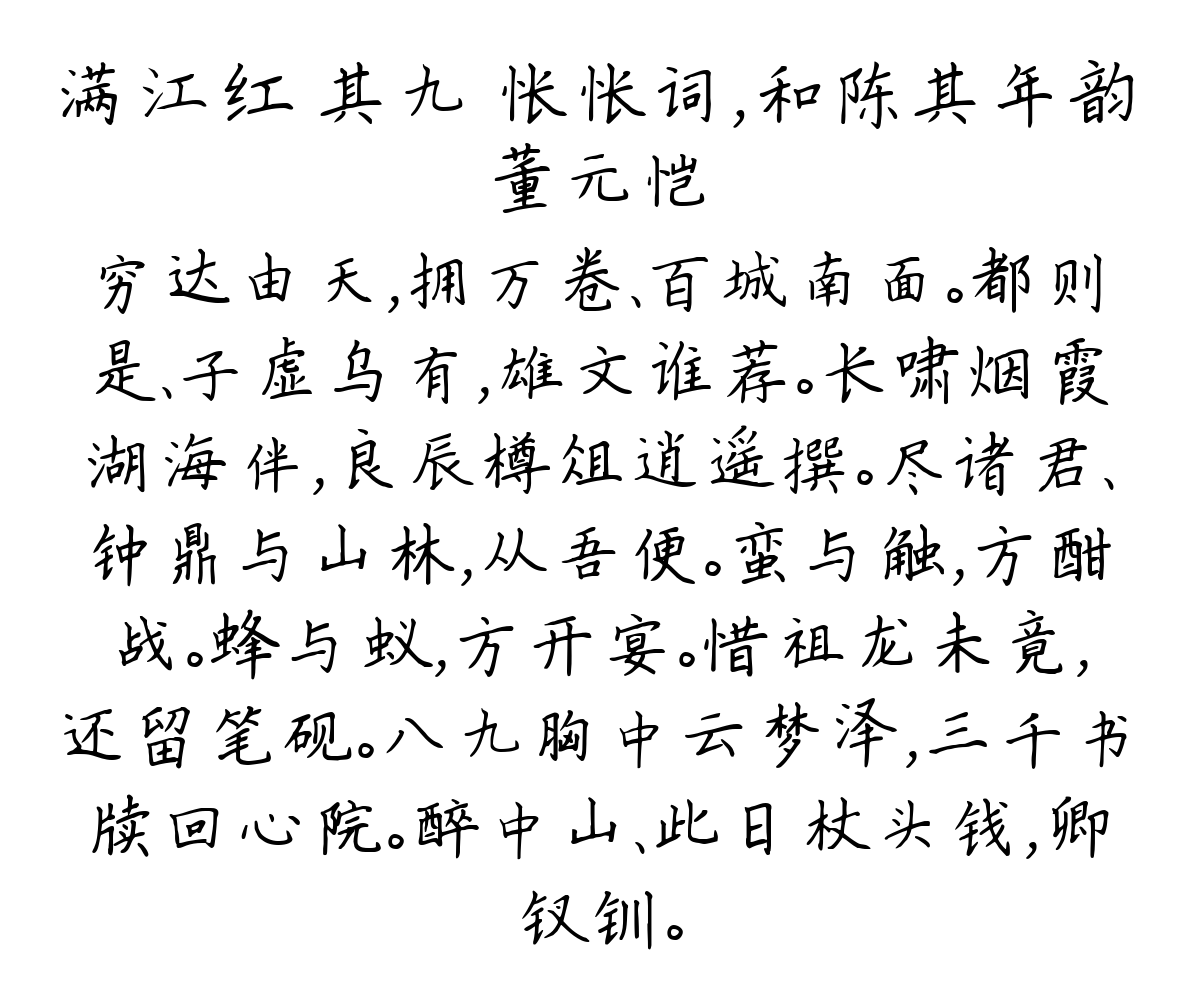 满江红 其九 怅怅词,和陈其年韵
董元恺
穷达由天,拥万卷、百城南面。都则
是、子虚乌有,雄文谁荐。长啸烟霞
湖海伴,良辰樽俎逍遥撰。尽诸君、
钟鼎与山林,从吾便。蛮与触,方酣
战。蜂与蚁,方开宴。惜祖龙未竟,
还留笔砚。八九胸中云梦泽,三千书
牍回心院。醉中山、此日杖头钱,卿
钗钏。